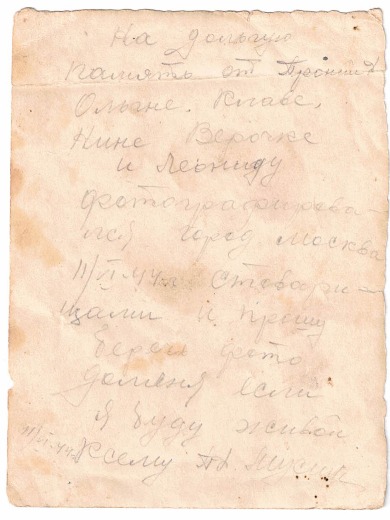 На долгую
память от
Ольане. Клаве,
Нине Верочке
и Леониду
фотографирова-
лся город Москва
11/VI-44г. Стовари-
щами и прошу
береги фото
доменя если
я буду живой.
11/VI-44г